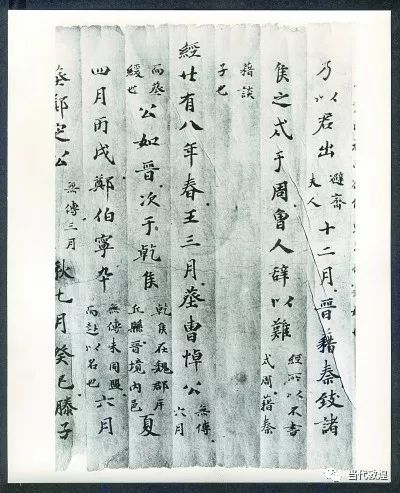 乃以君出避齊夫人十二月晉藉秦致諸
侯之戍于周魯人辞以難經所以不書戍周藉秦
藉談子也
經廿有八年春王三月葬曹悼公無傳六月
而葬緩也公如晉次于乾侯乾侯在魏郡斥丘縣晉境內邑夏
四月丙戌鄭伯寧卒無傳未同盟而赴以名也六月
葬鄭定公無傳三月秋七月癸巳滕子
当代敦煌